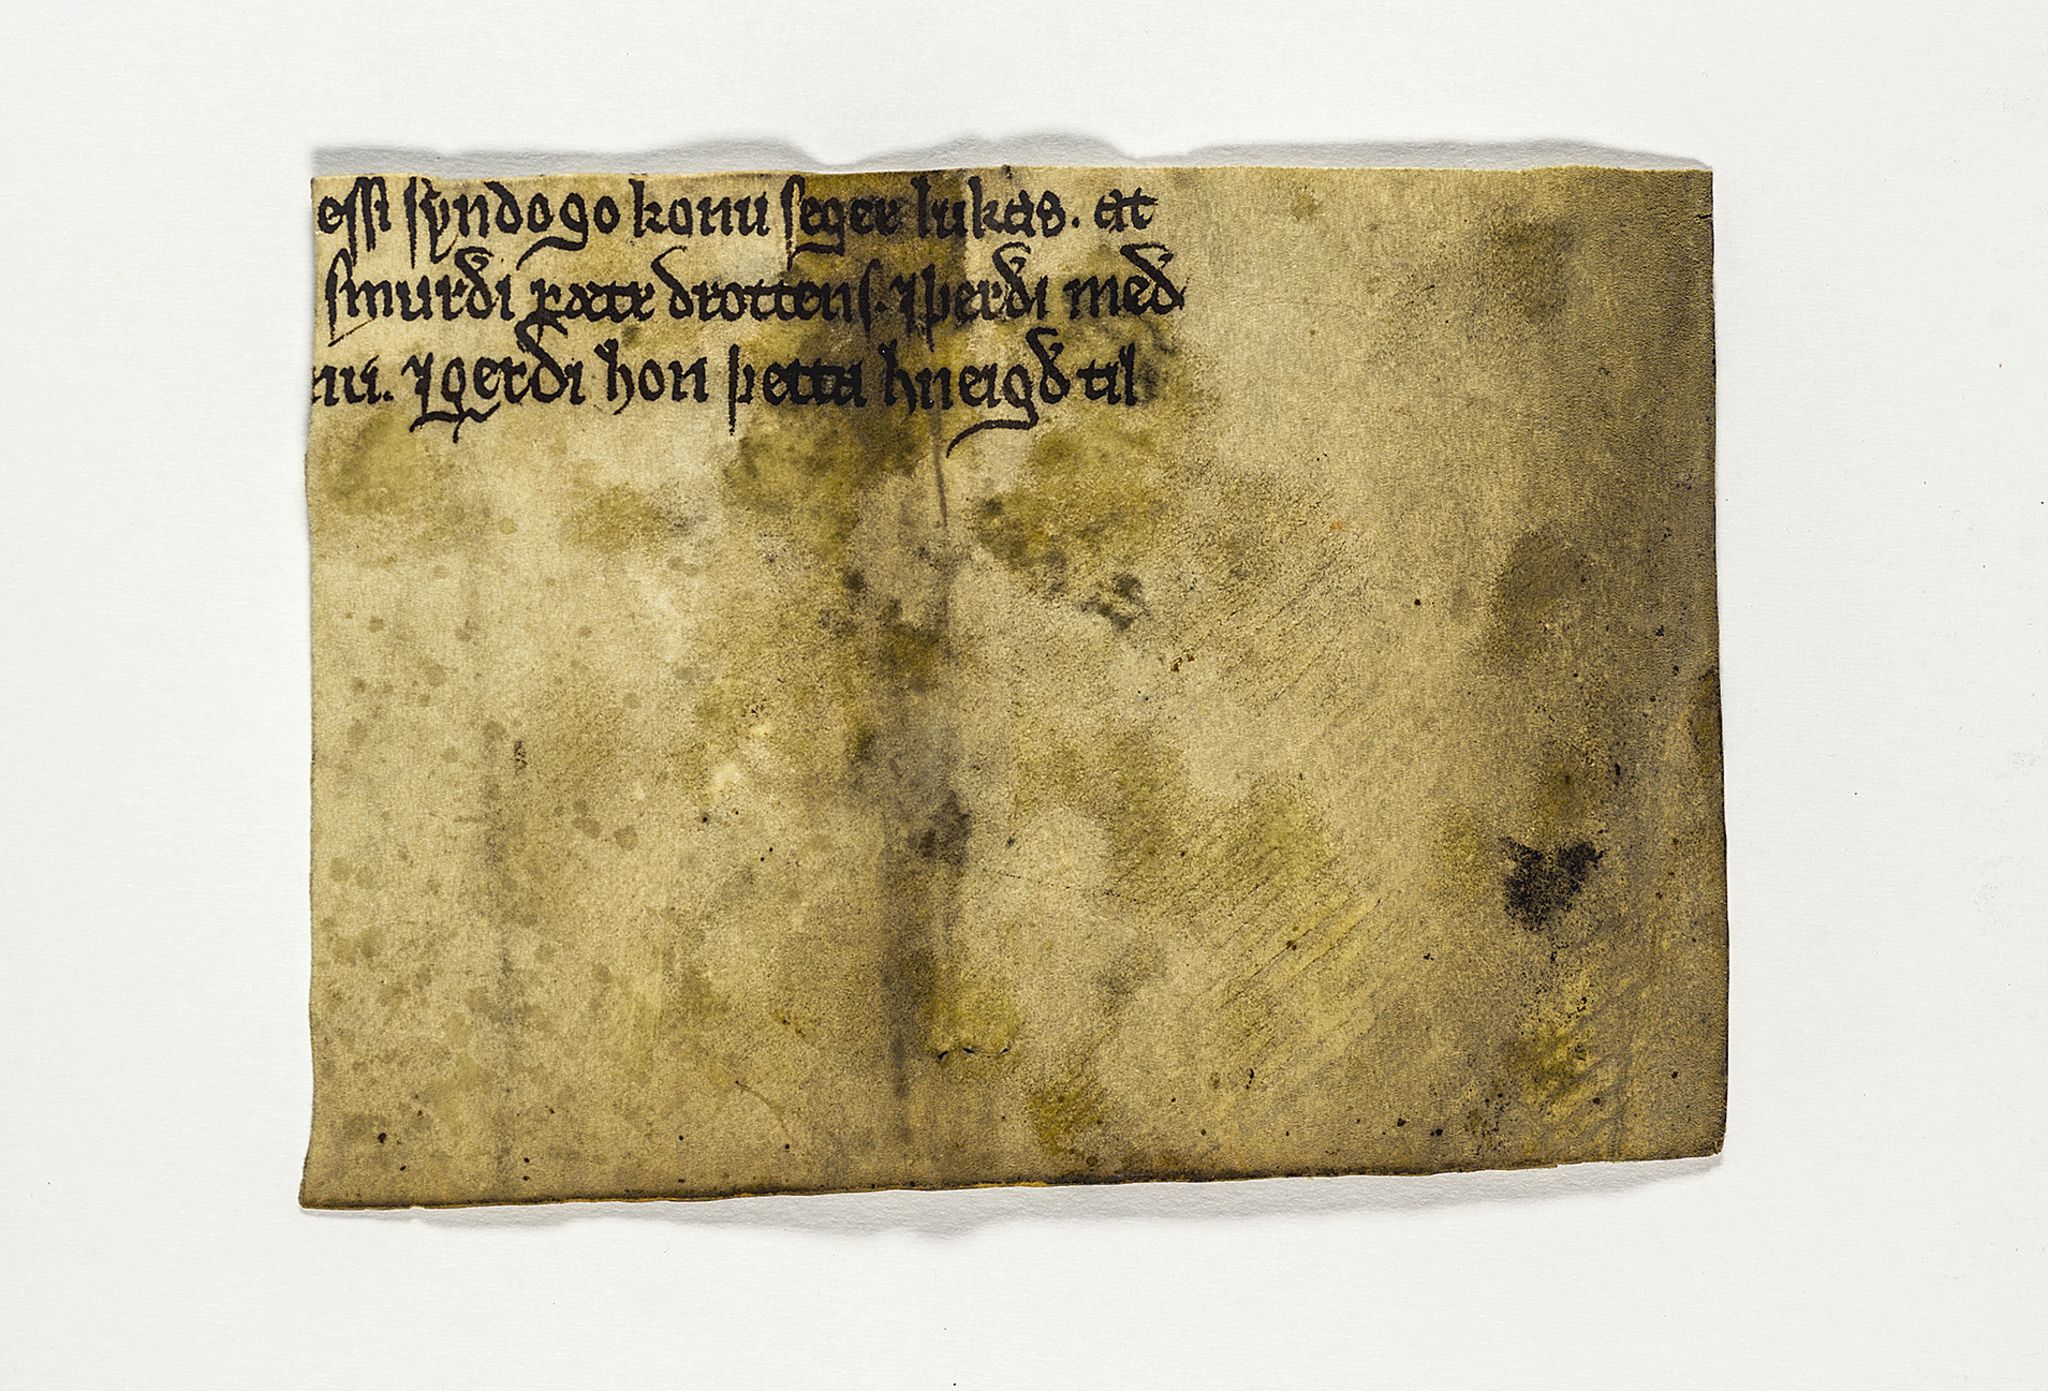 essi syndogo konu seger lukas. at
smurdi fætr drottens. ⁊ þerdi med
ni. ⁊ gerdi hon þetta hneigd til